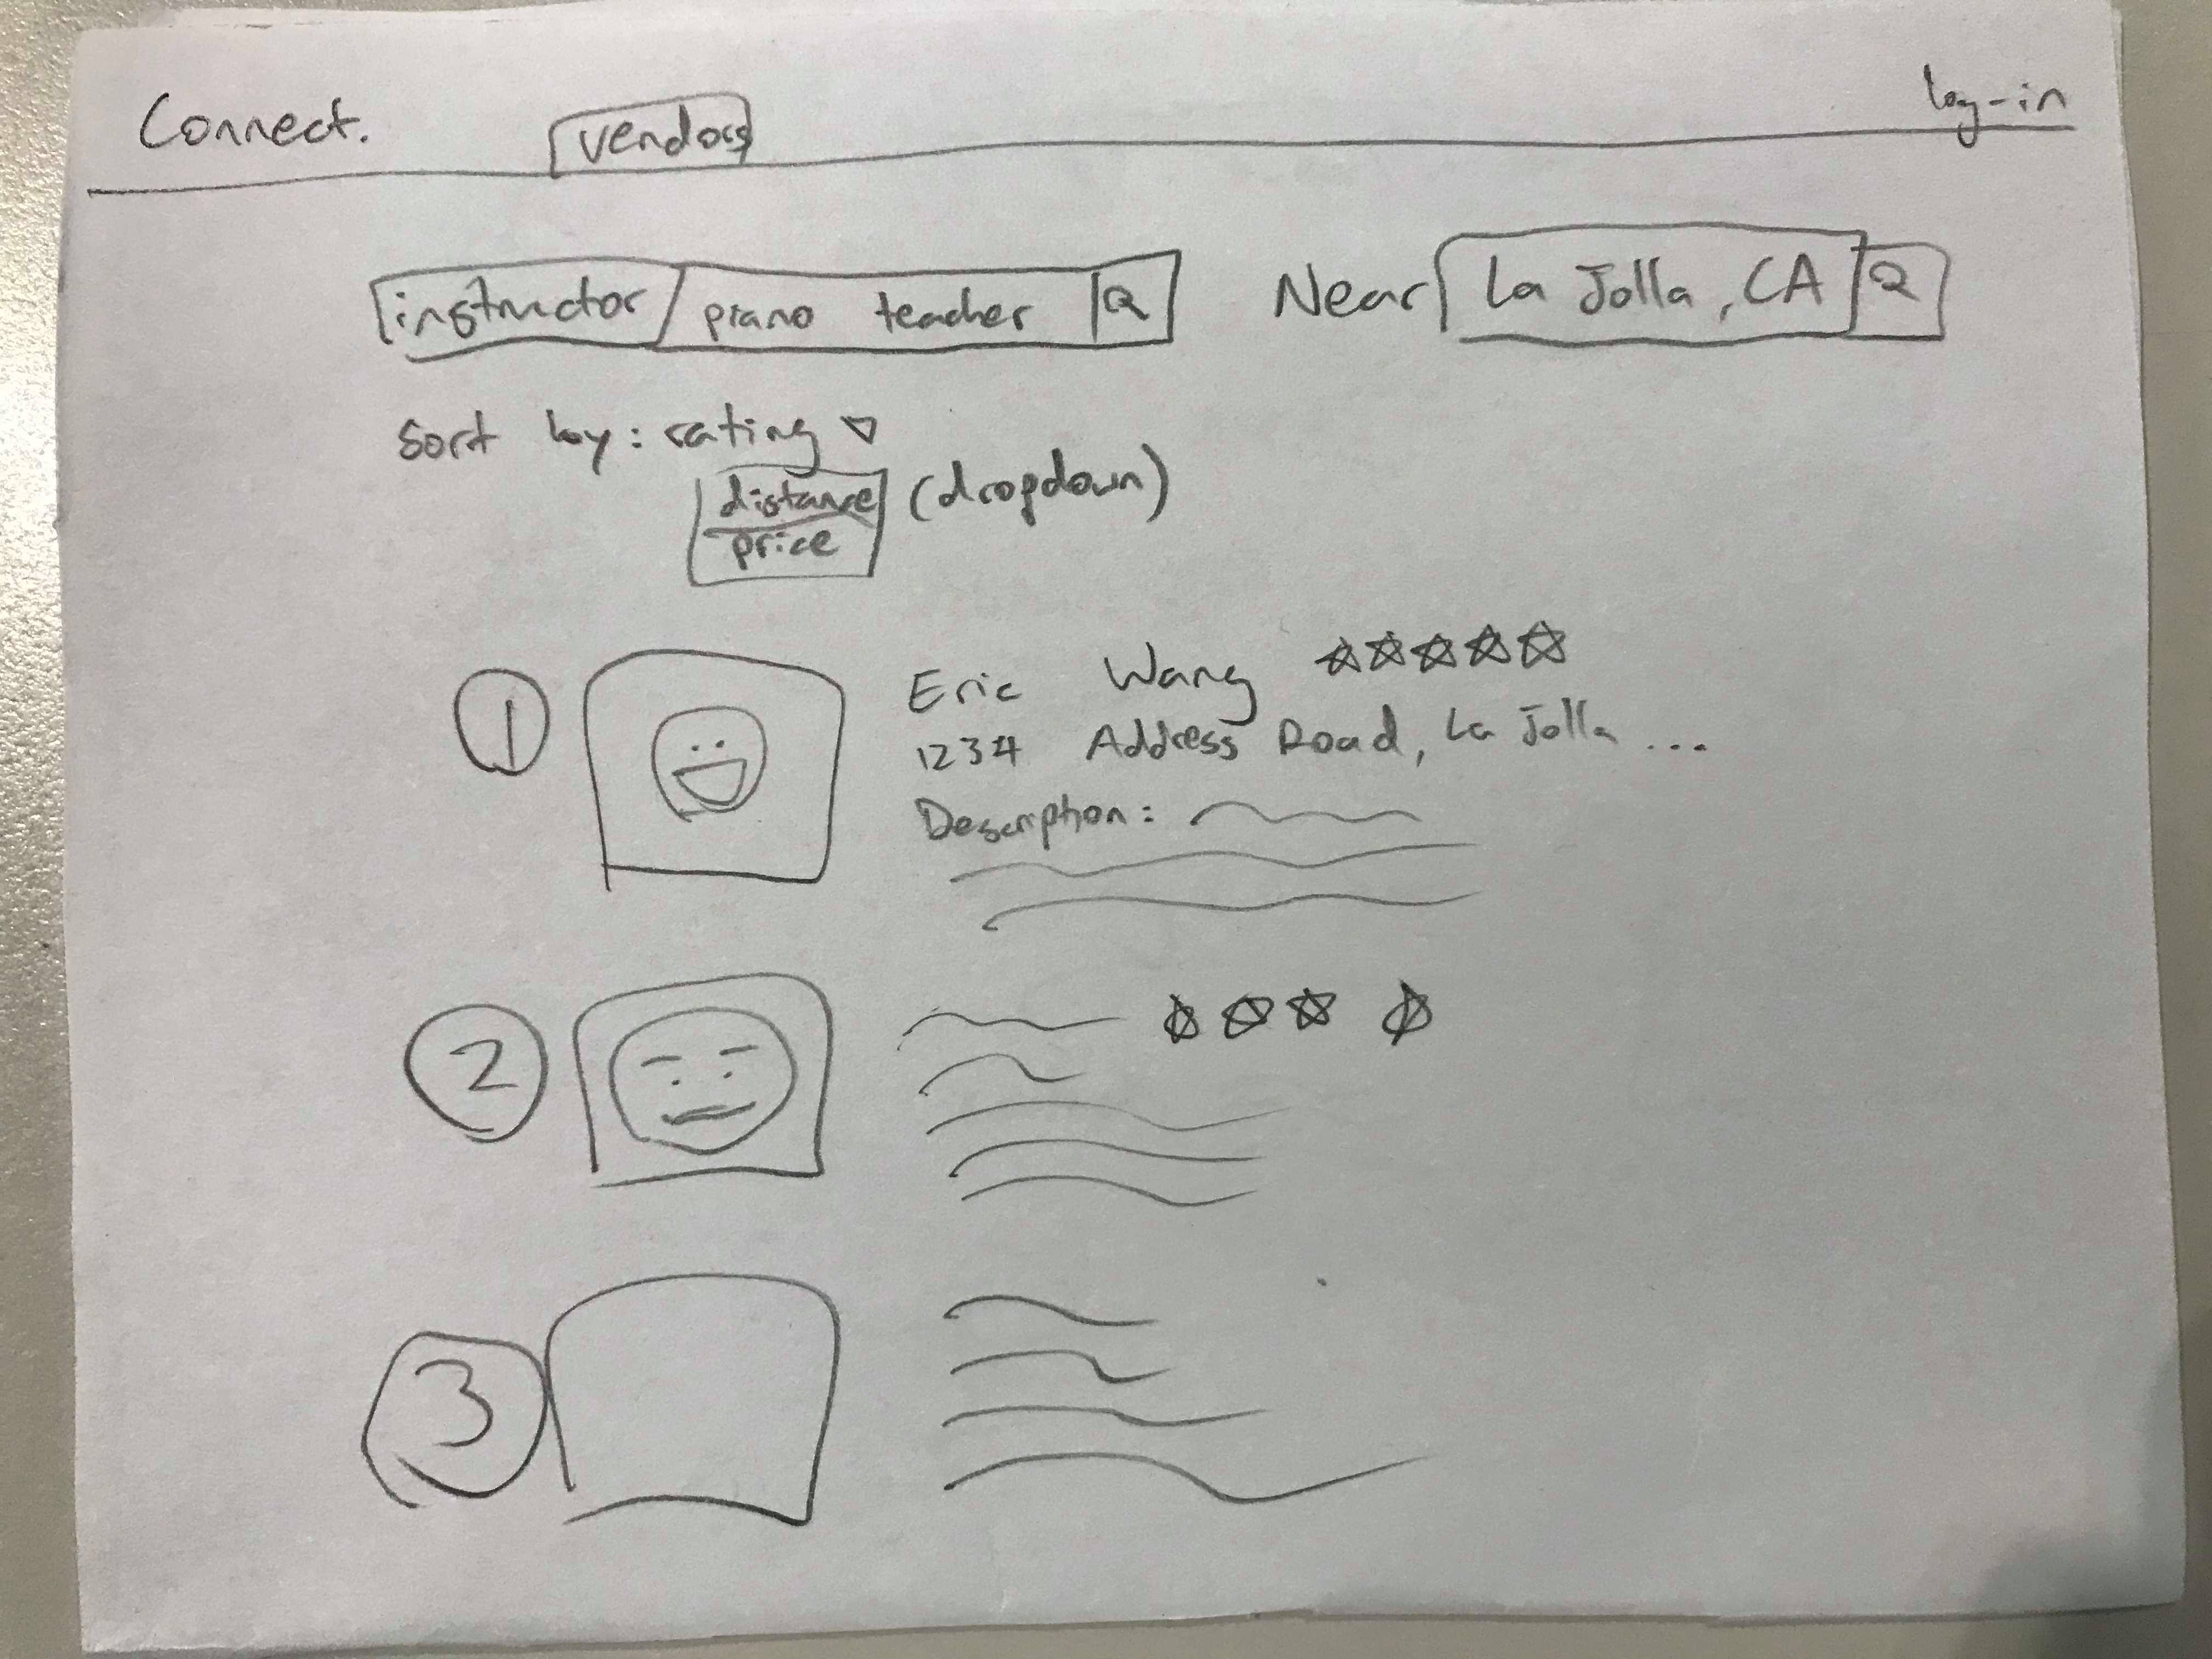 Connect.
vendors
log-in
instructor piano teacher
Near La Jolla, CA
Sort by: rating
distance (dropdown)
price
1
Eric Wang
1234 Address Road, La Jolla ...
Description:
2
3